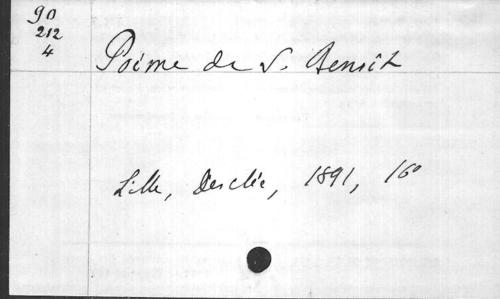 90
212
4
Poème de S. Benoît
Lille, Desclée, 1891, 16º